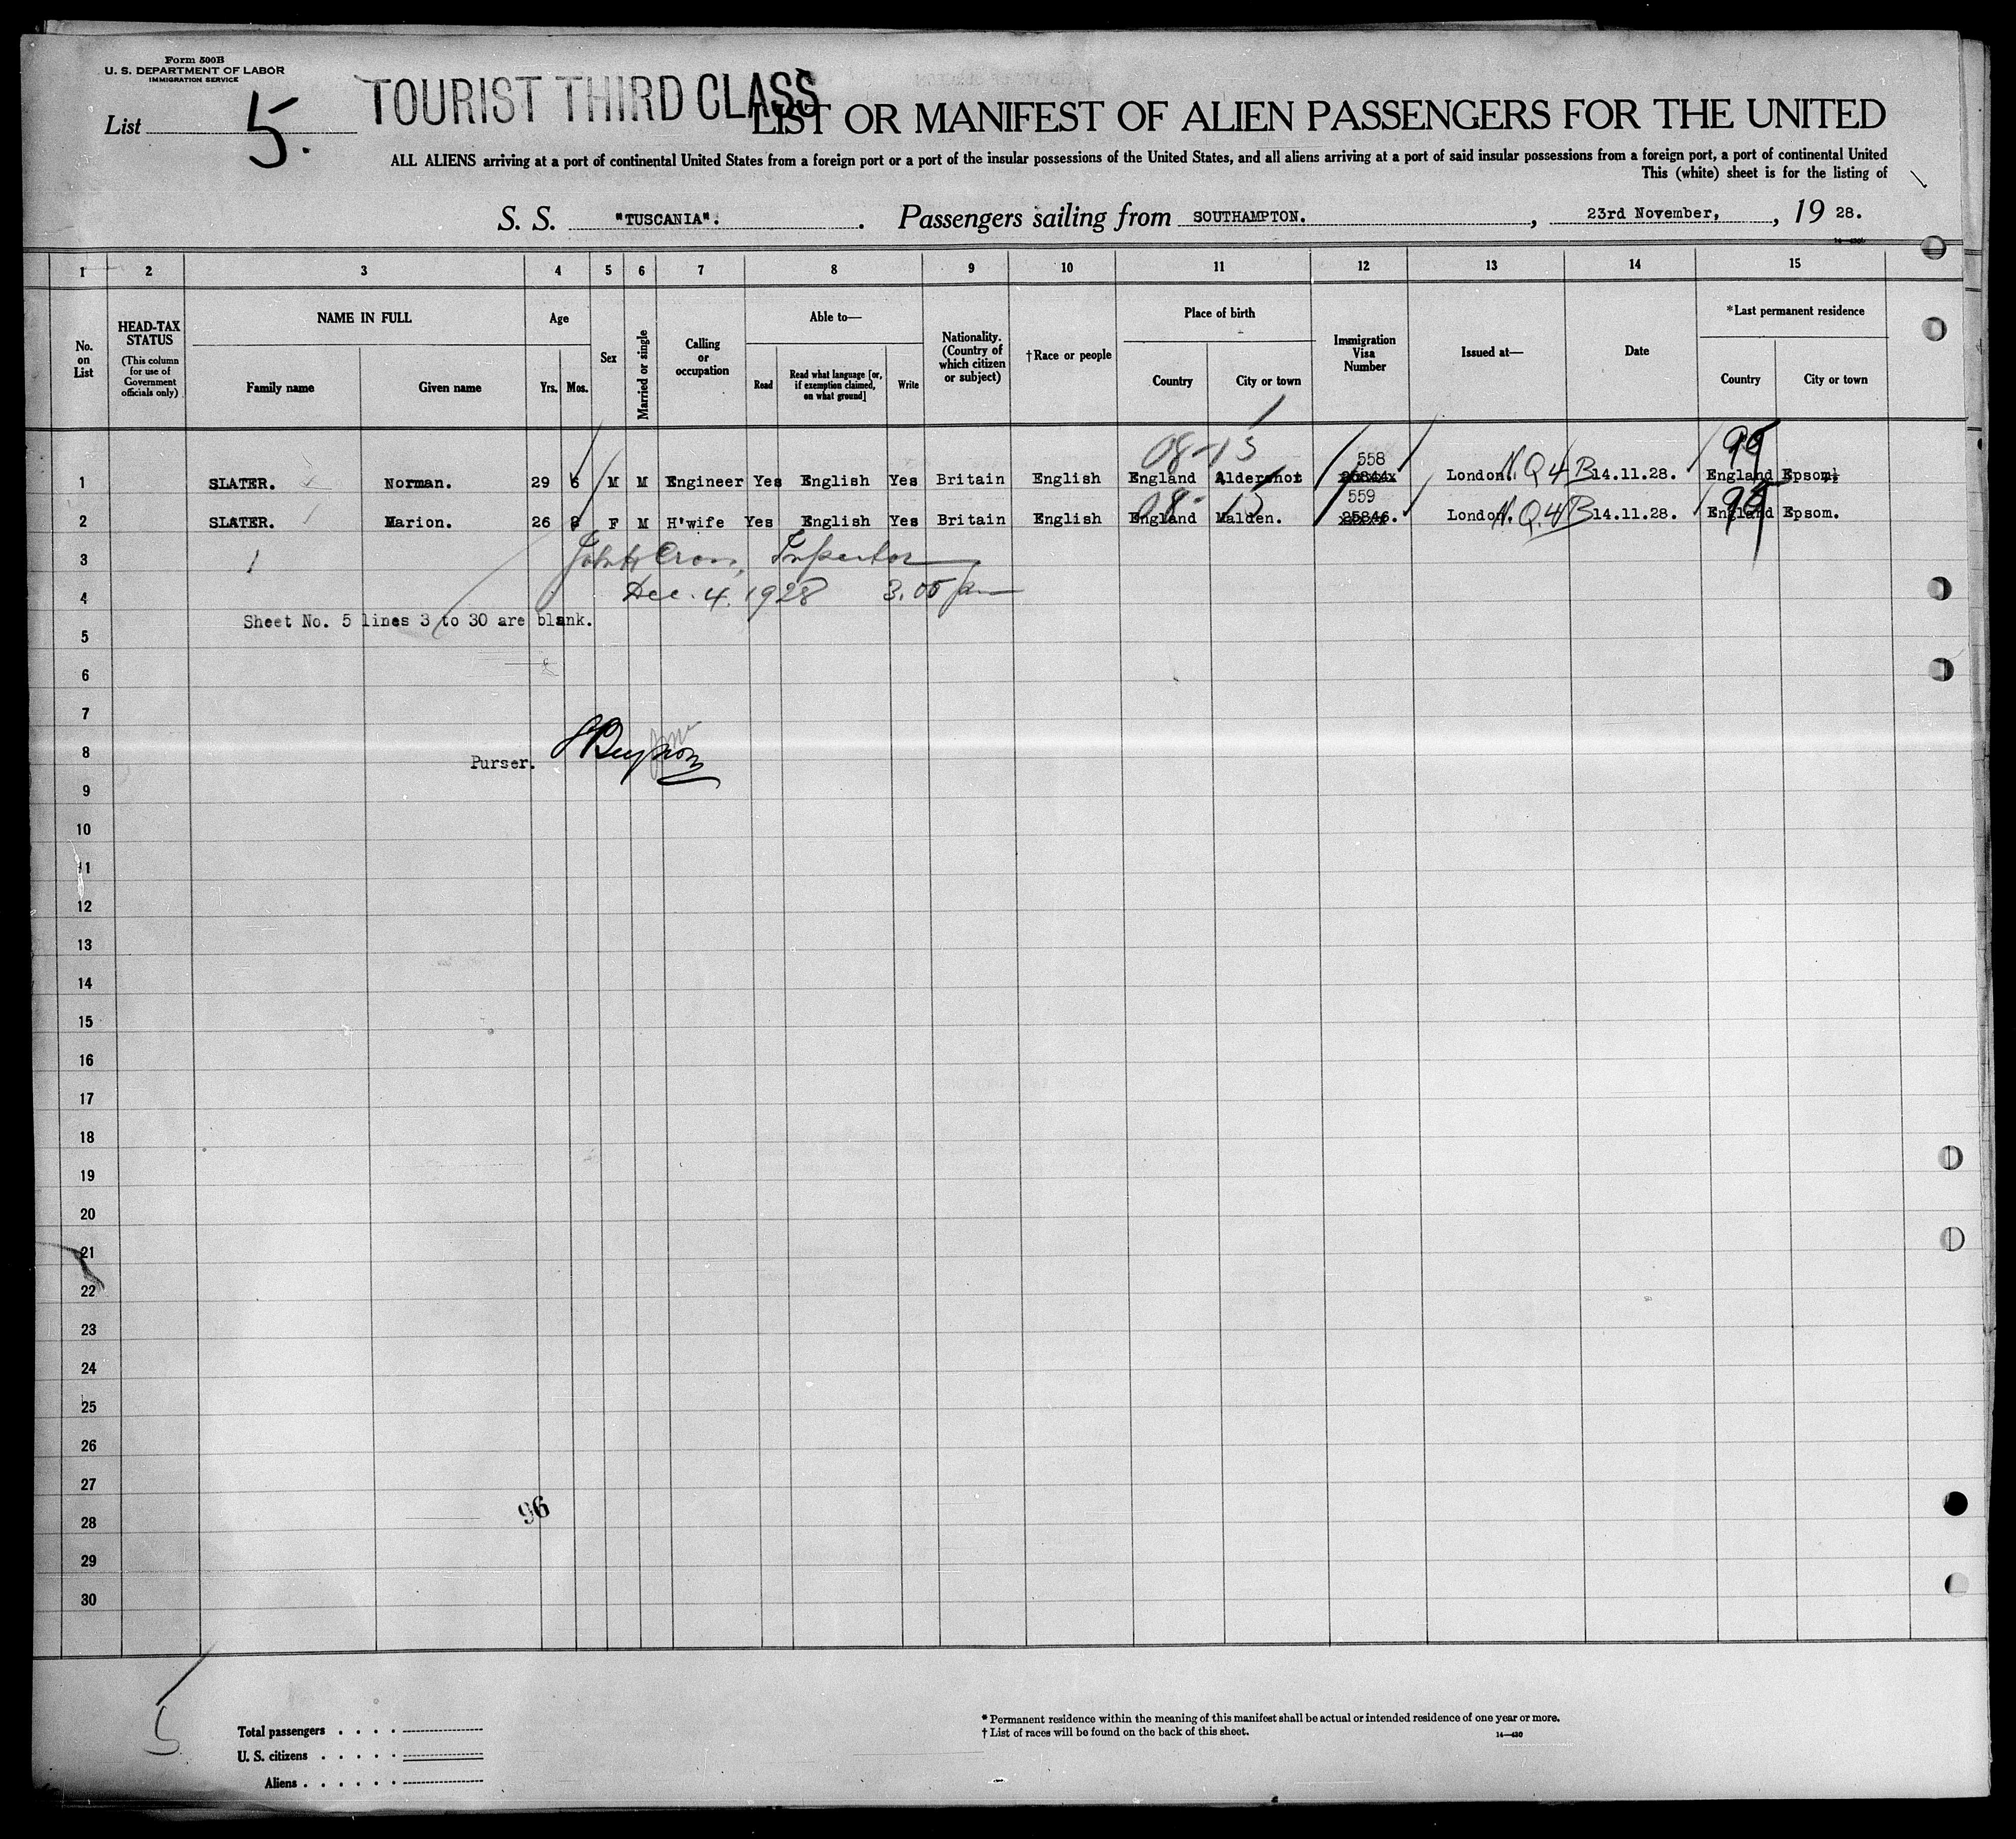 Form 500B
U. S. DEPARTMENT OF LABOR
IMMIGRATION SERVICE
TOURIST THIRD CLASS
List 5.
LIST OR MANIFEST OF ALIEN PASSENGERS FOR THE UNITED
ALL ALIENS arriving at a port of continental United States from a foreign port or a port of the insular possessions of the United States, and all aliens arriving at a port of said insular possessions from a foreign port, a port of continental United
This (white) sheet is for the listing of
S. S. "TUSCANIA". . Passengers sailing from SOUTHAMPTON. , 23rd November, , 19 28.
1 2 3 4 5 6 7 8 9 10 11 12 13 14 15
No. on List
HEAD-TAX STATUS
(This column for use of Government officials only)
NAME IN FULL
Family name Given name
Age
Yrs. Mos.
Sex
Married or single
Calling or occupation
Able to—
Read Read what language [or, if exemption claimed, on what ground] Write
Nationality. (Country of which citizen or subject)
†Race or people
Place of birth
Country City or town
Immigration Visa Number
Issued at—
Date
*Last permanent residence
Country City or town
08-13 558 90
1 SLATER. Norman. 29 M M Engineer Yes English Yes Britain English England Aldershot 25844 London. N.Q 4 B 14.11.28. England Epsom.
08- 13 559 90
2 SLATER. Marion. 26 F M H'wife Yes English Yes Britain English England Malden. 25846. London. N.Q.4 B 14.11.28. England Epsom.
3 John H Cross, Inspector
4 Dec. 4. 1928 3.05 pm
Sheet No. 5 lines 3 to 30 are blank.
5
6
7
8
Purser.
9
10
11
12
13
14
15
16
17
18
19
20
21
22
23
24
25
26
27
96
28
29
30
5
Total passengers . . . .
U. S. citizens . . . . .
Aliens . . . . . .
* Permanent residence within the meaning of this manifest shall be actual or intended residence of one year or more.
† List of races will be found on the back of this sheet.
14—430